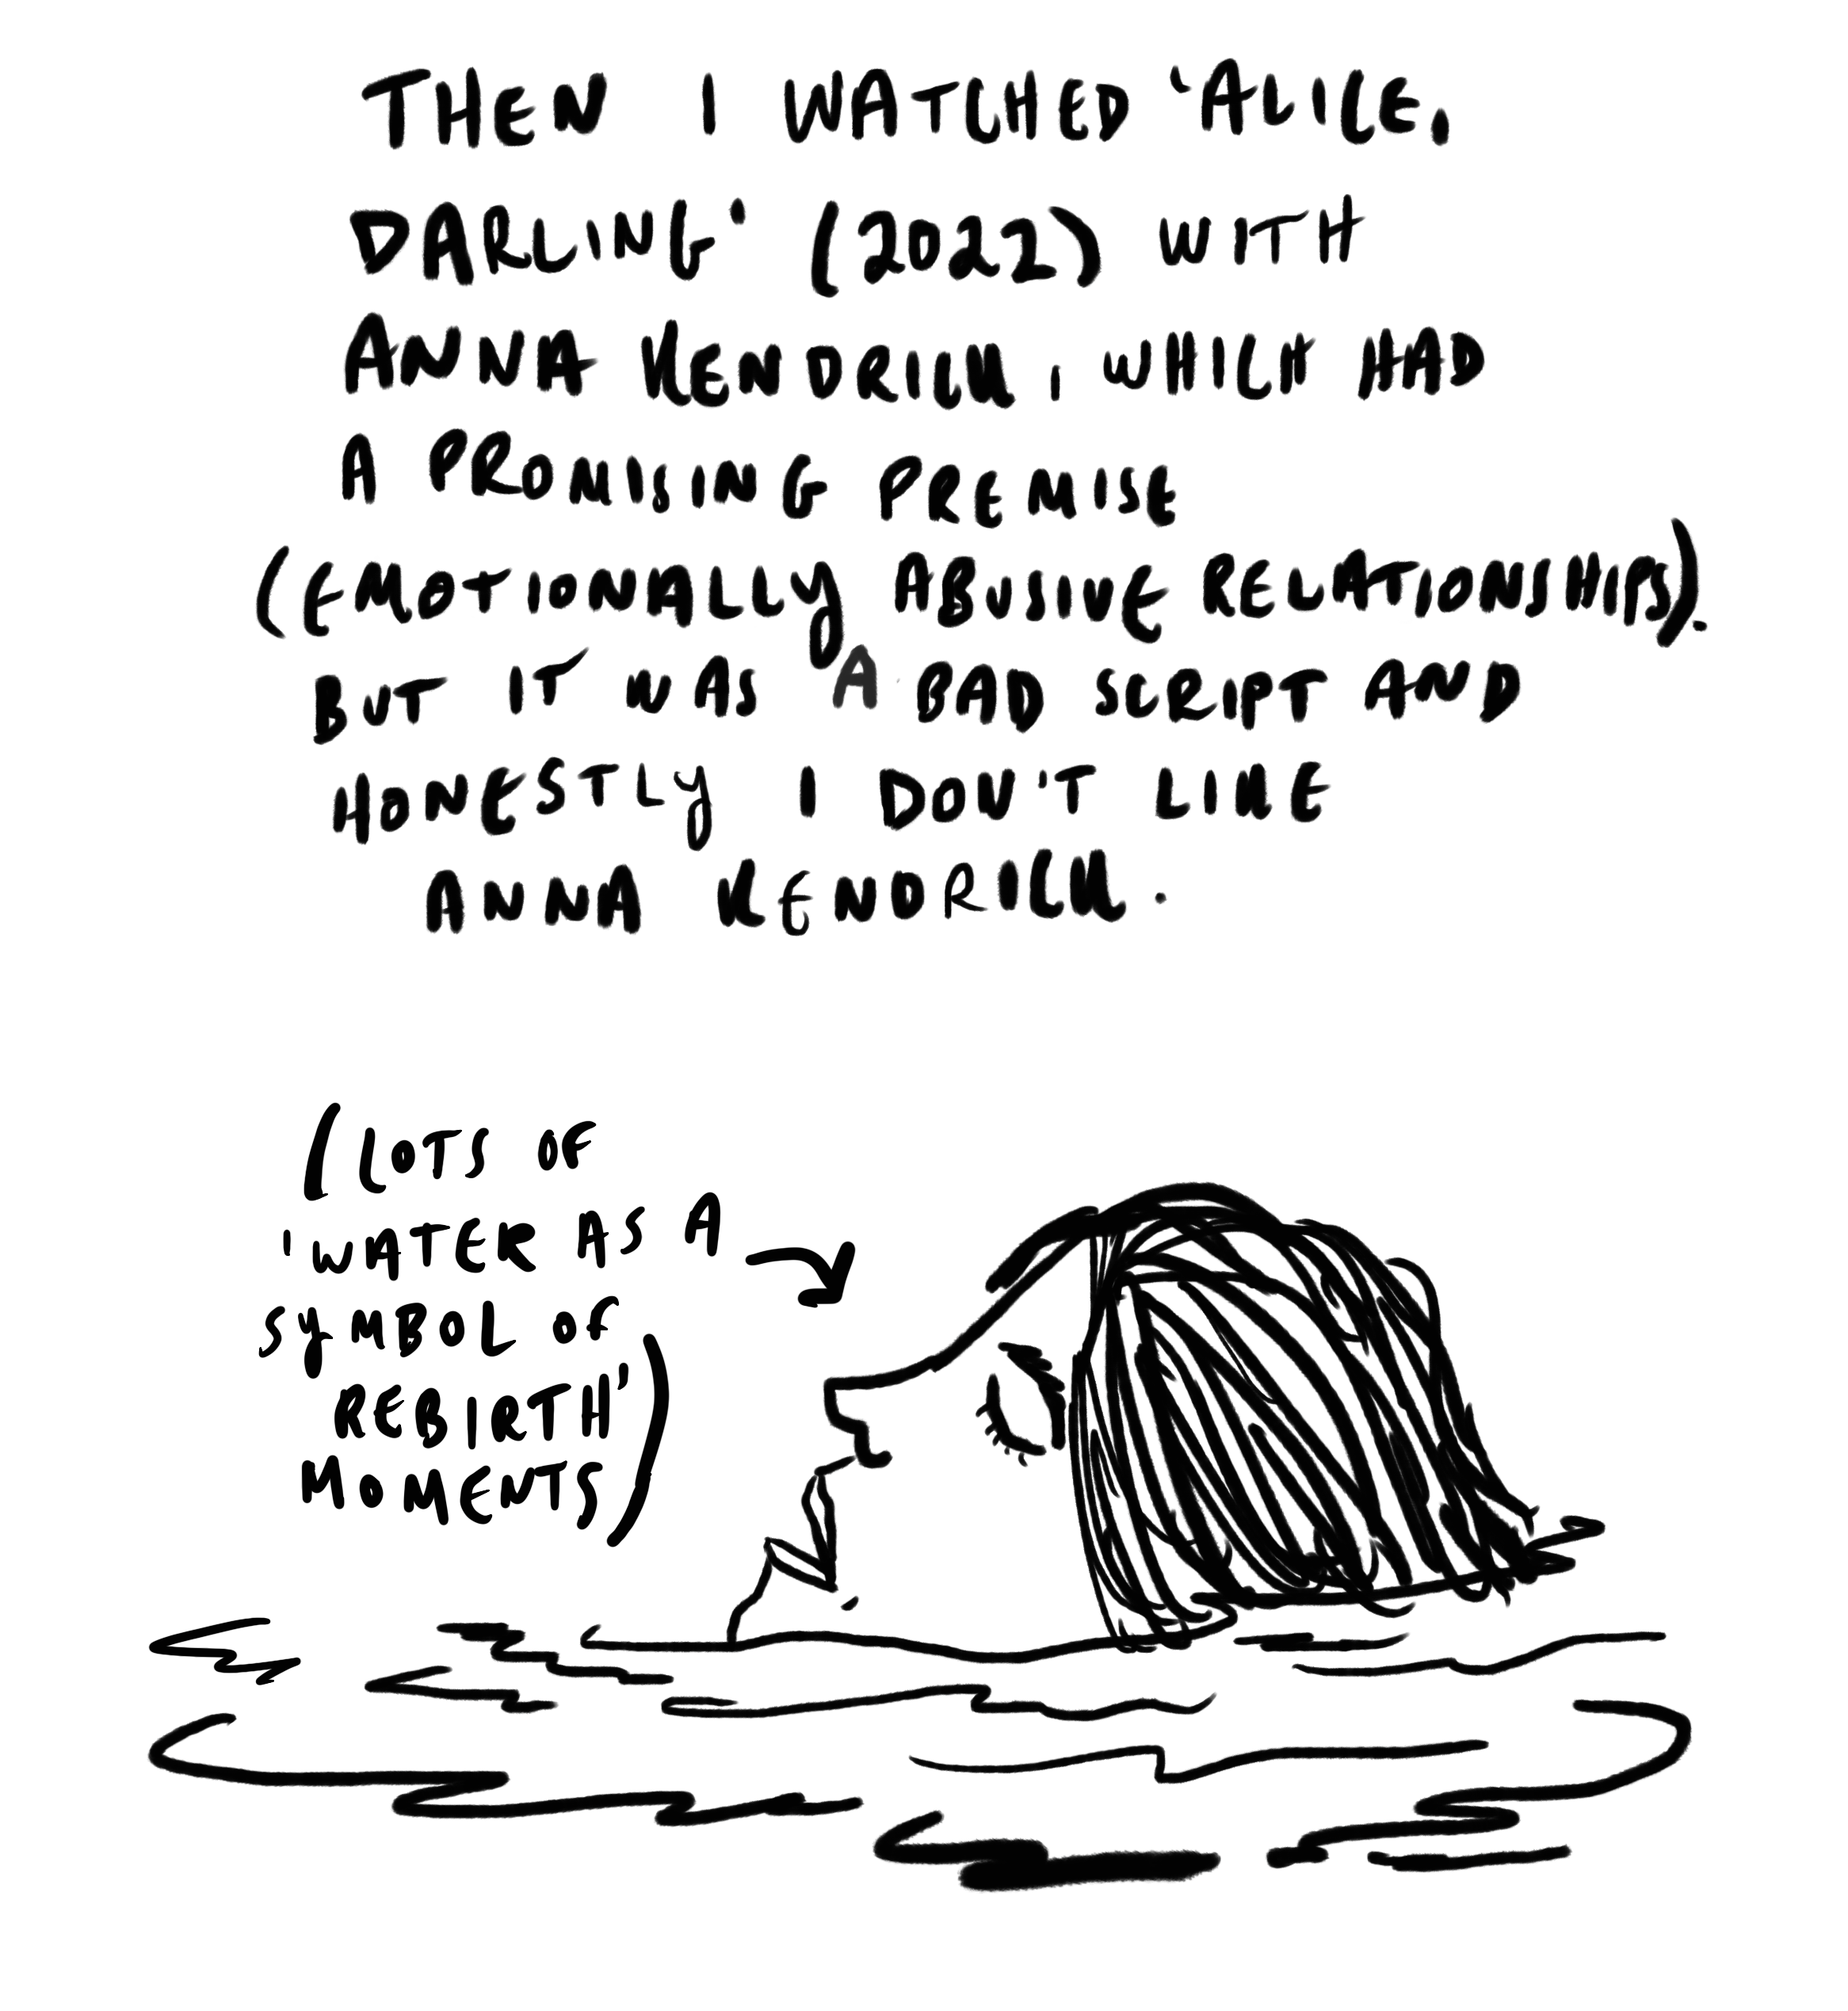 THEN I WATCHED 'ALICE,
DARLING' (2022) WITH
ANNA KENDRICK, WHICH HAD
A PROMISING PREMISE
(EMOTIONALLY ABUSIVE RELATIONSHIPS).
BUT IT WAS A BAD SCRIPT AND
HONESTLY I DON'T LIKE
ANNA KENDRICK.
(LOTS OF
'WATER AS A
SYMBOL OF
REBIRTH'
MOMENTS)